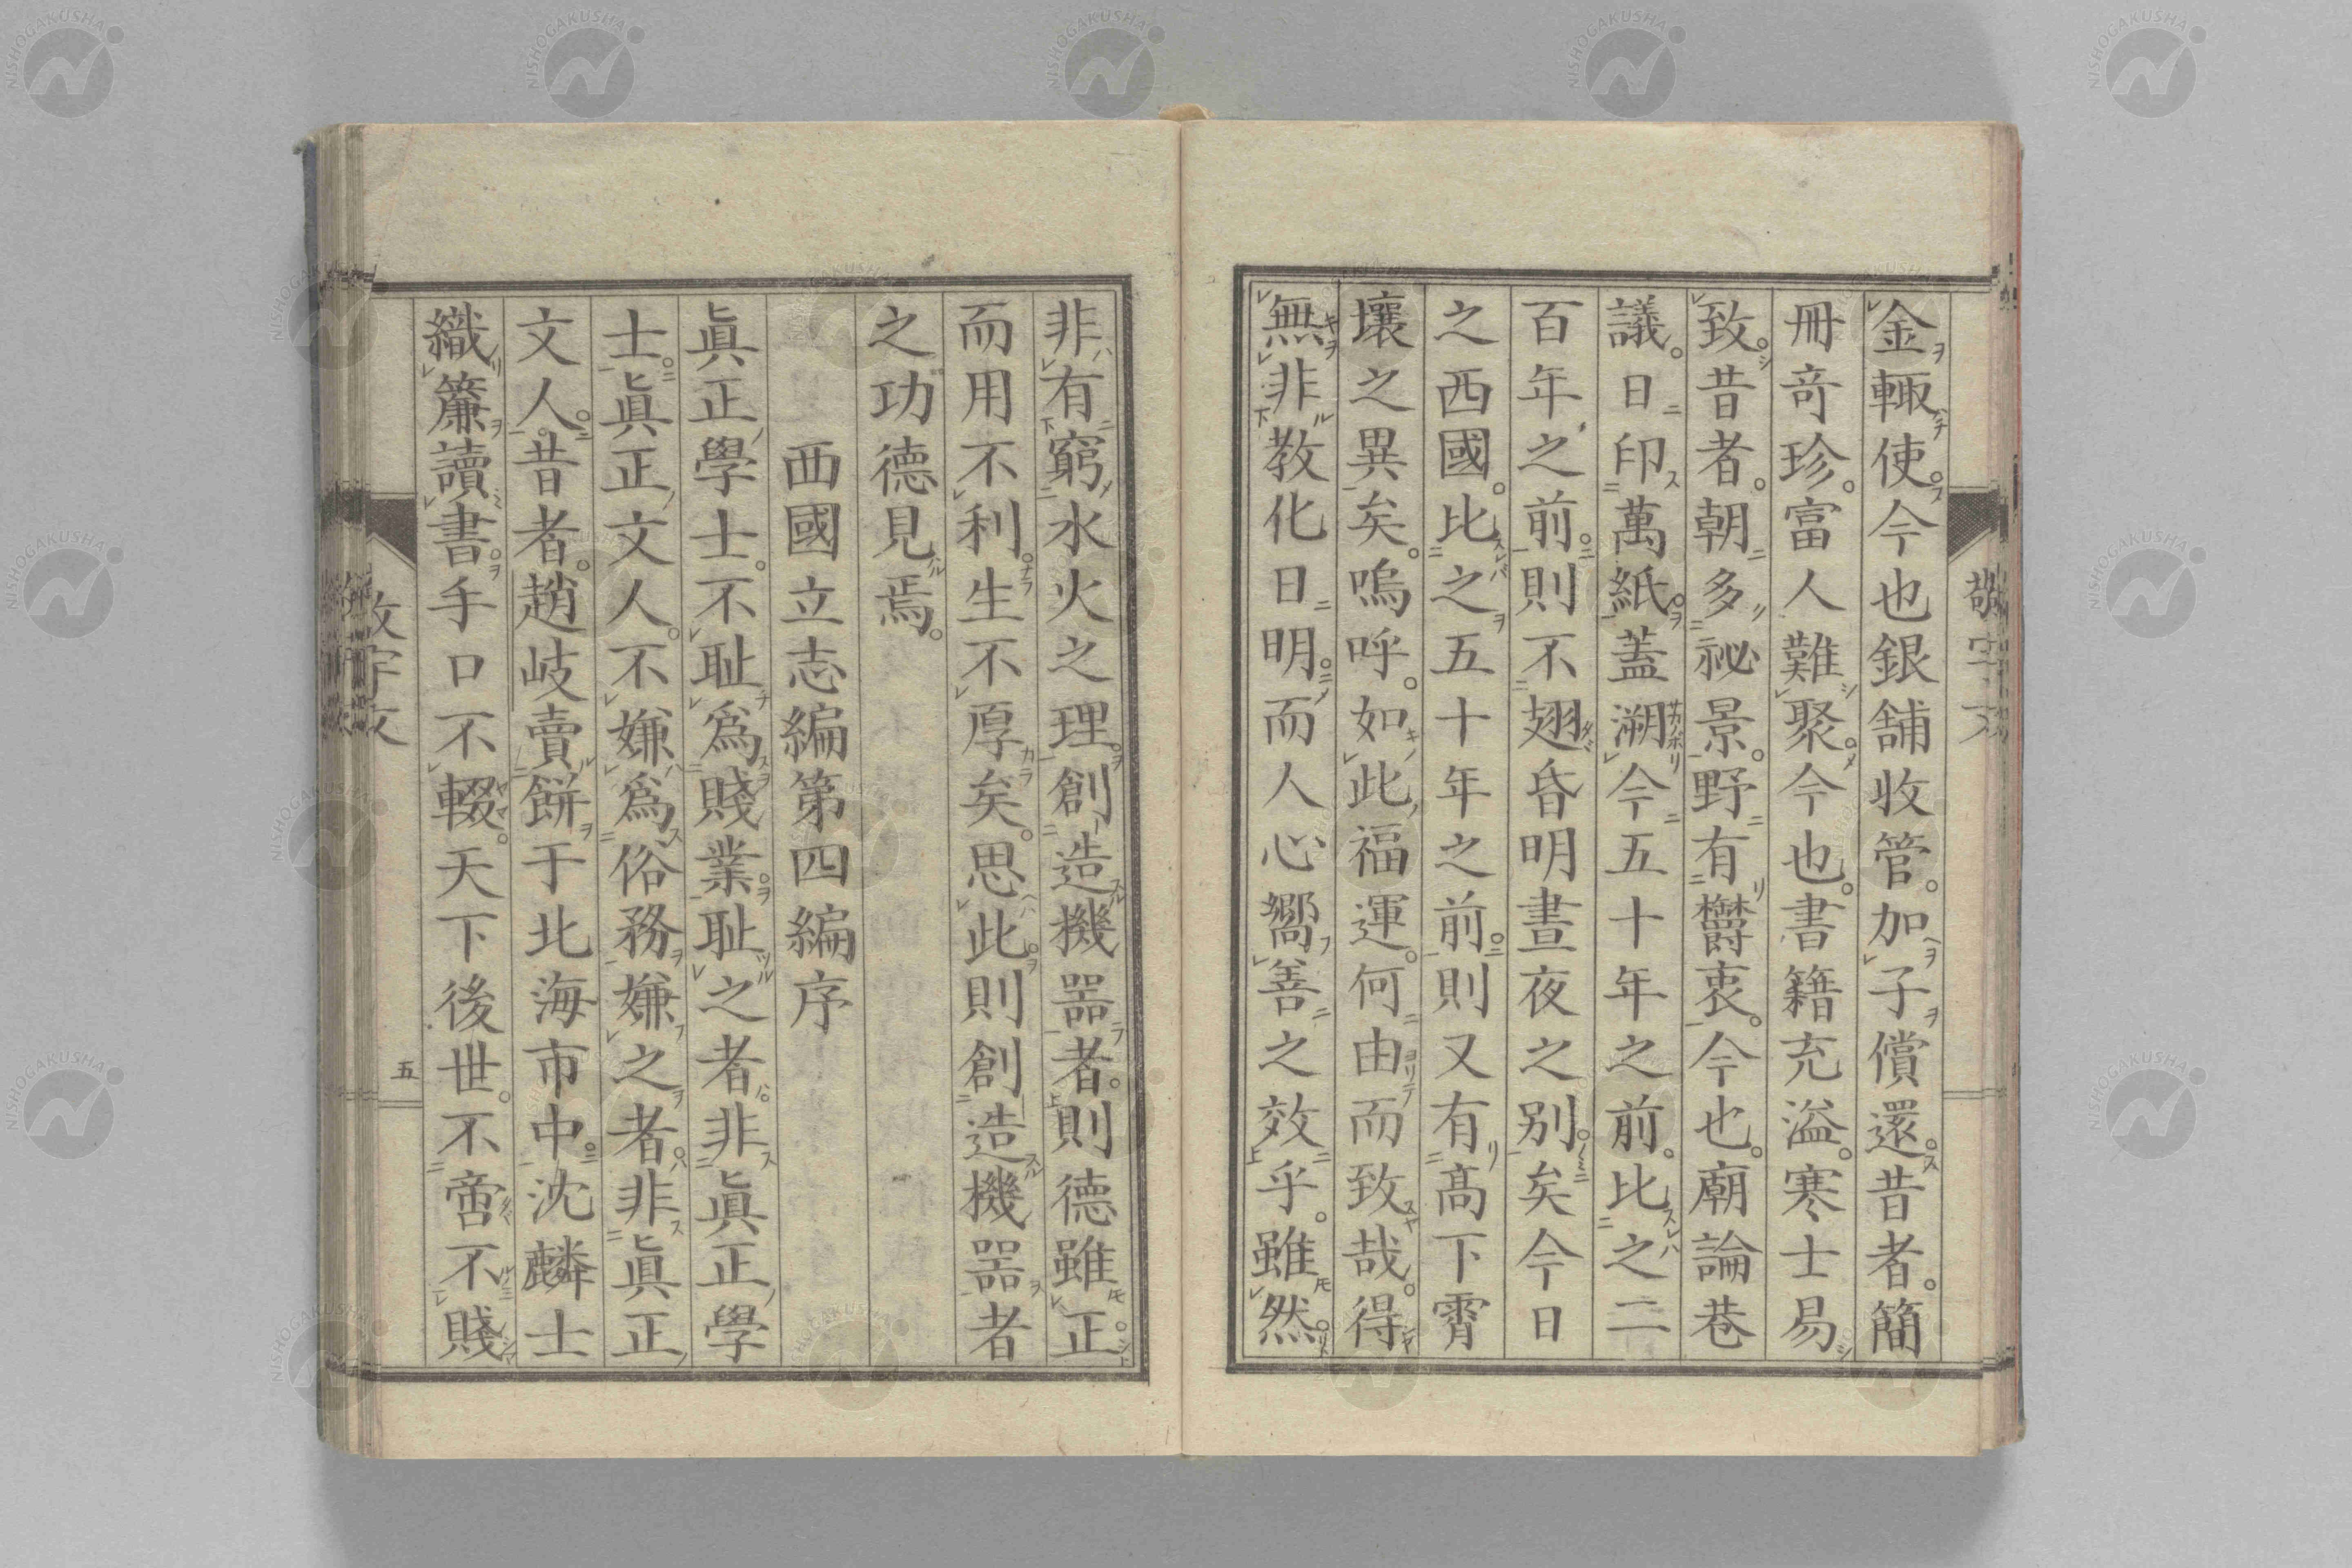 金輙使。今也銀舗收管。加子償還。昔者。簡
冊竒珍。富人難聚。今也。書籍充溢。寒士易
致。昔者。朝多祕景。野有欝衷。今也。廟論巷
議。日印萬紙。蓋溯今五十年之前。比之二
百年之前。則不翅昏明晝夜之别。矣今日
之西國。比之五十年之前。則又有髙下霄
壤之異矣。嗚呼。如此福運。何由而致哉。得
無非教化日明。而人心嚮善之效乎。雖然。
非有窮水火之理。創造機器者。則德雖正。
而用不利。生不厚矣。思此。則創造機器者
之功德見焉。
西國立志編第四編序
眞正學士。不耻爲賤業。耻之者。非眞正學
士。眞正文人。不嫌爲俗務。嫌之者。非眞正
文人。昔者。趙岐賣餅于北海市中。沈麟士
織簾讀書。手口不輟。天下後世。不啻不賤
五
NISHOGAKUSHA